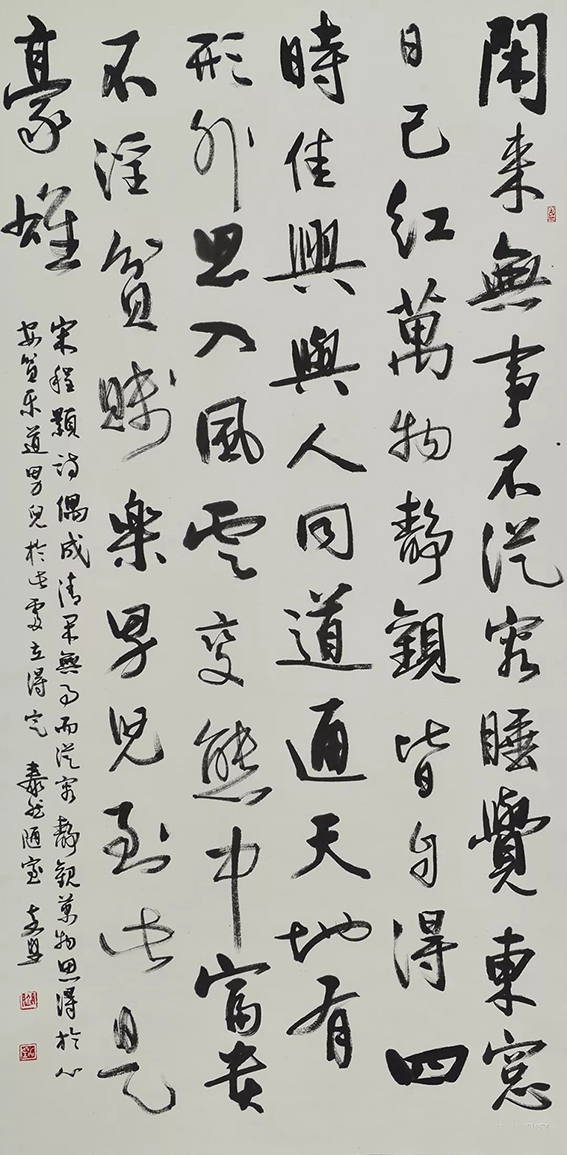 閑来無事不從容睡覺東窓
日已紅萬物靜觀皆自得四
時佳興與人同道通天地有
形外思入風雲變態中富貴
不淫貧賤樂男兒到此是
豪雄
宋程顥詩偶成清無事而從容靜觀萬物思得於心
安貧樂道男兒於此處立得定 泰然陋室